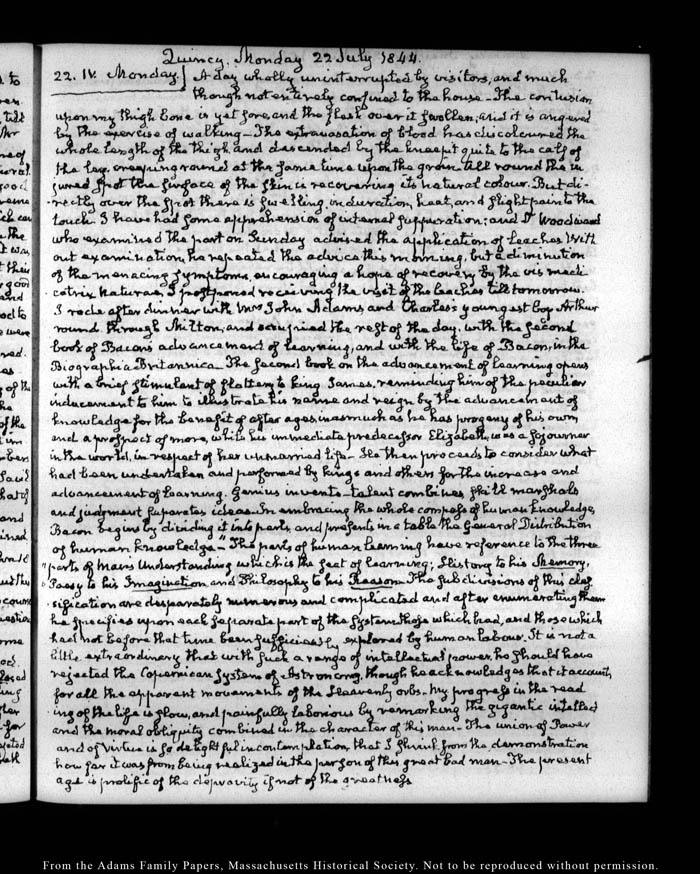 Quincy. Monday 22 July 1844.
22. IV. Monday. A day wholly uninterrupted by visitors, and much
though not entirely confined to the house - The contusion
upon my thigh bone is yet sore, and the flesh over it swollen, and it is angered
by the exercise of walking - The extravasation of blood has discoloured the
whole length of the thigh, and descended by the kneepit quite to the calf of
the leg, creeping round at the same time upon the groin. All round the in
jured spot the surface of the skin is recovering its natural colour. But di-
rectly over the spot there is swelling, induration, heat, and slight pain to the
touch. I have had some apprehension of internal suppuration; and Dr Woodward
who examined the part on Sunday advised the application of leaches. With
out examination, he repeated the advice this morning, but a diminution
of the menacing symptoms, encouraging a hope of recovery by the vis medi
catrix naturae, I postponed receiving the visit of the leaches till tomorrow.
I rode after dinner with Mrs John Adams, and Charles's youngest boy Arthur
round through Milton, and occupied the rest of the day, with the second
book of Bacon's advancement of learning, and with the life of Bacon, in the
Biographia Britannica - The second book on the advancement of learning opens
with a brief stimulant of flattery to king James, reminding him of the peculiar
inducement to him to illustrate his name and reign by the advancement of
knowledge for the benefit of after ages, inasmuch as he has progeny of his own,
and a prospect of more, while his immediate predecessor Elizabeth, was a sojourner
in the world, in respect of her unmarried life - He then proceeds to consider what
had been undertaken and performed by kings and others for the increase and
advancement of learning. Genius invents - talent combines, skill marshals
and judgment separates ideas. In embracing the whole compass of human knowledge,
Bacon begins by dividing it into parts, and presents in a table the General Distribution
of human knowledge - "The parts of human learning have reference to the three
"parts of Man's Understanding which is the seat of learning; History to his Memory,
"Poesy to his Imagination and Philosophy to his Reason. The subdivisions of this clas
sification are desperately numerous and complicated and after enumerating them
he specifies upon each separate part of the system, those which had, and those which
had not before that time been sufficiently explored by human labour. It is not a
little extraordinary that with such a range of intellectual power, he should have
rejected the Copernican System of Astronomy, though he acknowledges that it accounts
for all the apparent movements of the heavenly orbs. My progress in the read
ing of the life is slow, and painfully laborious by remarking the gigantic intellect
and the moral obliquity combined in the character of this man - The union of Power
and of Virtue is so delightful in contemplation, that I shrink from the demonstration
how far it was from being realized in the person of this great bad man - The present
age is prolific of the depravity if not of the greatness
From the Adams Family Papers, Massachusetts Historical Society. Not to be reproduced without permission.